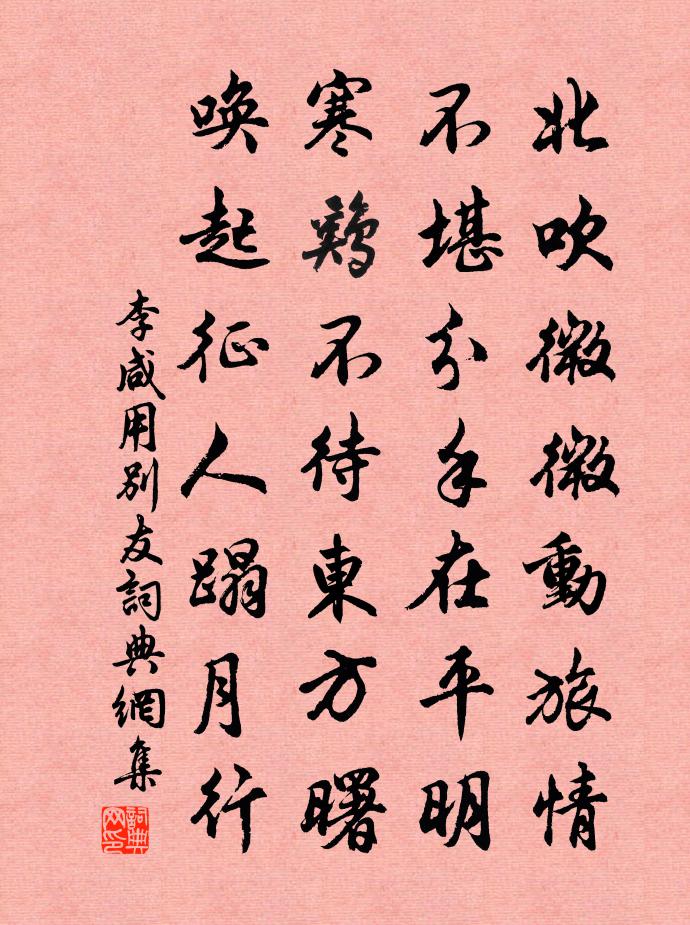 北吹微微動旅情
不堪分手在平明
寒鷄不待東方曙
喚起征人蹋月行
李咸用別友詞典網集
詞典网印